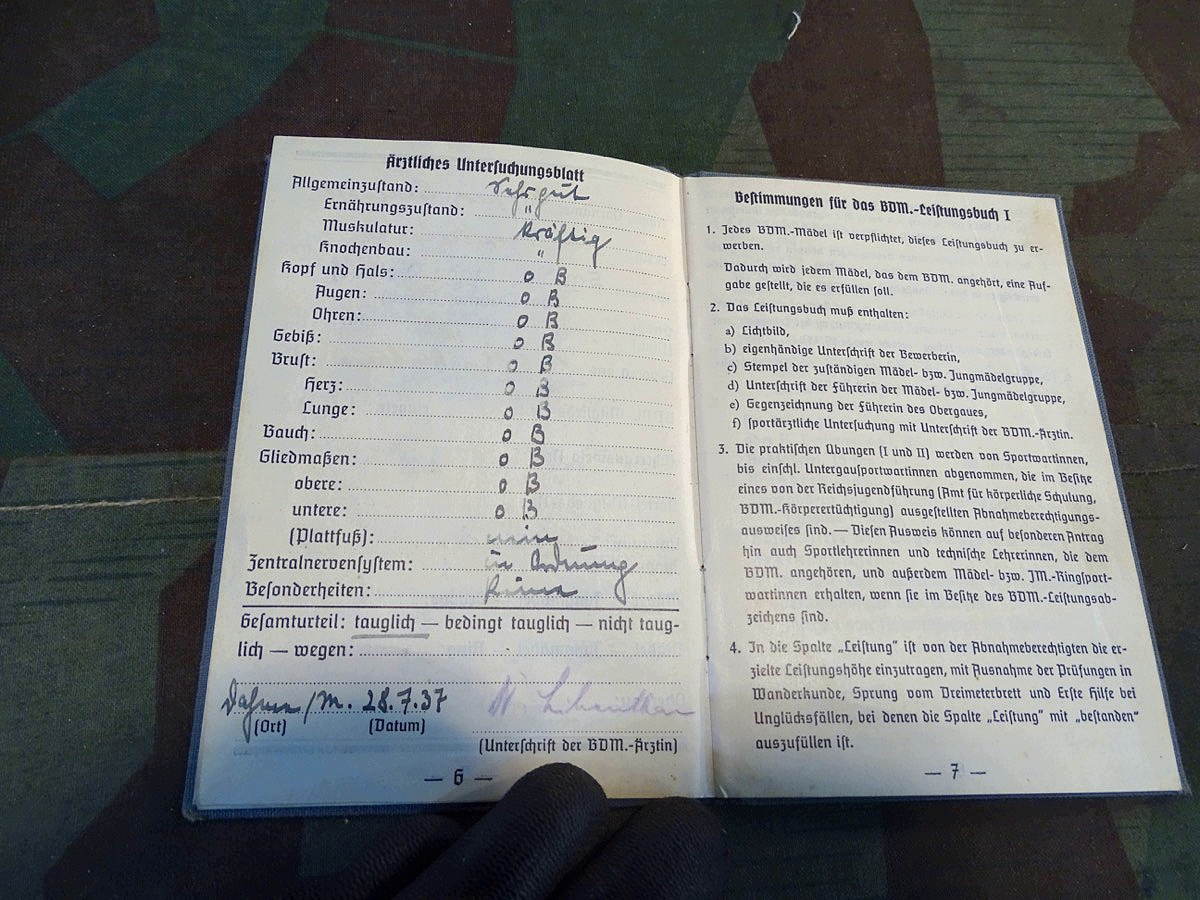 Ärztliches Untersuchungsblatt
Allgemeinzustand: Sehr gut
Ernährungszustand: "
Muskulatur: kräftig
Knochenbau: "
Kopf und Hals: o B
Augen: o B
Ohren: o B
Gebiß: o B
Brust: o B
Herz: o B
Lunge: o B
Bauch: o B
Gliedmaßen: o B
obere: o B
untere: o B
(Plattfuß): nein
Zentralnervensystem: in Ordnung
Besonderheiten: keine
Gesamturteil: tauglich — bedingt tauglich — nicht taug-
lich — wegen:
/M. 28.7.37
(Ort) (Datum)
(Unterschrift der BDM.-Ärztin)
— 6 —
Bestimmungen für das BDM.-Leistungsbuch I
1. Jedes BDM.-Mädel ist verpflichtet, dieses Leistungsbuch zu er-
werben.
Dadurch wird jedem Mädel, das dem BDM. angehört, eine Auf-
gabe gestellt, die es erfüllen soll.
2. Das Leistungsbuch muß enthalten:
a) Lichtbild,
b) eigenhändige Unterschrift der Bewerberin,
c) Stempel der zuständigen Mädel- bzw. Jungmädelgruppe,
d) Unterschrift der Führerin der Mädel- bzw. Jungmädelgruppe,
e) Gegenzeichnung der Führerin des Obergaues,
f) sportärztliche Untersuchung mit Unterschrift der BDM.-Ärztin.
3. Die praktischen Übungen (I und II) werden von Sportwartinnen,
bis einschl. Untergausportwartinnen abgenommen, die im Besitze
eines von der Reichsjugendführung (Amt für körperliche Schulung,
BDM.-Körperertüchtigung) ausgestellten Abnahmeberechtigungs-
ausweises sind. — Diesen Ausweis können auf besonderen Antrag
hin auch Sportlehrerinnen und technische Lehrerinnen, die dem
BDM. angehören, und außerdem Mädel- bzw. JM.-Ringsport-
wartinnen erhalten, wenn sie im Besitze des BDM.-Leistungsab-
zeichens sind.
4. In die Spalte „Leistung" ist von der Abnahmeberechtigten die er-
zielte Leistungshöhe einzutragen, mit Ausnahme der Prüfungen in
Wanderkunde, Sprung vom Dreimeterbrett und Erste Hilfe bei
Unglücksfällen, bei denen die Spalte „Leistung" mit „bestanden"
auszufüllen ist.
— 7 —